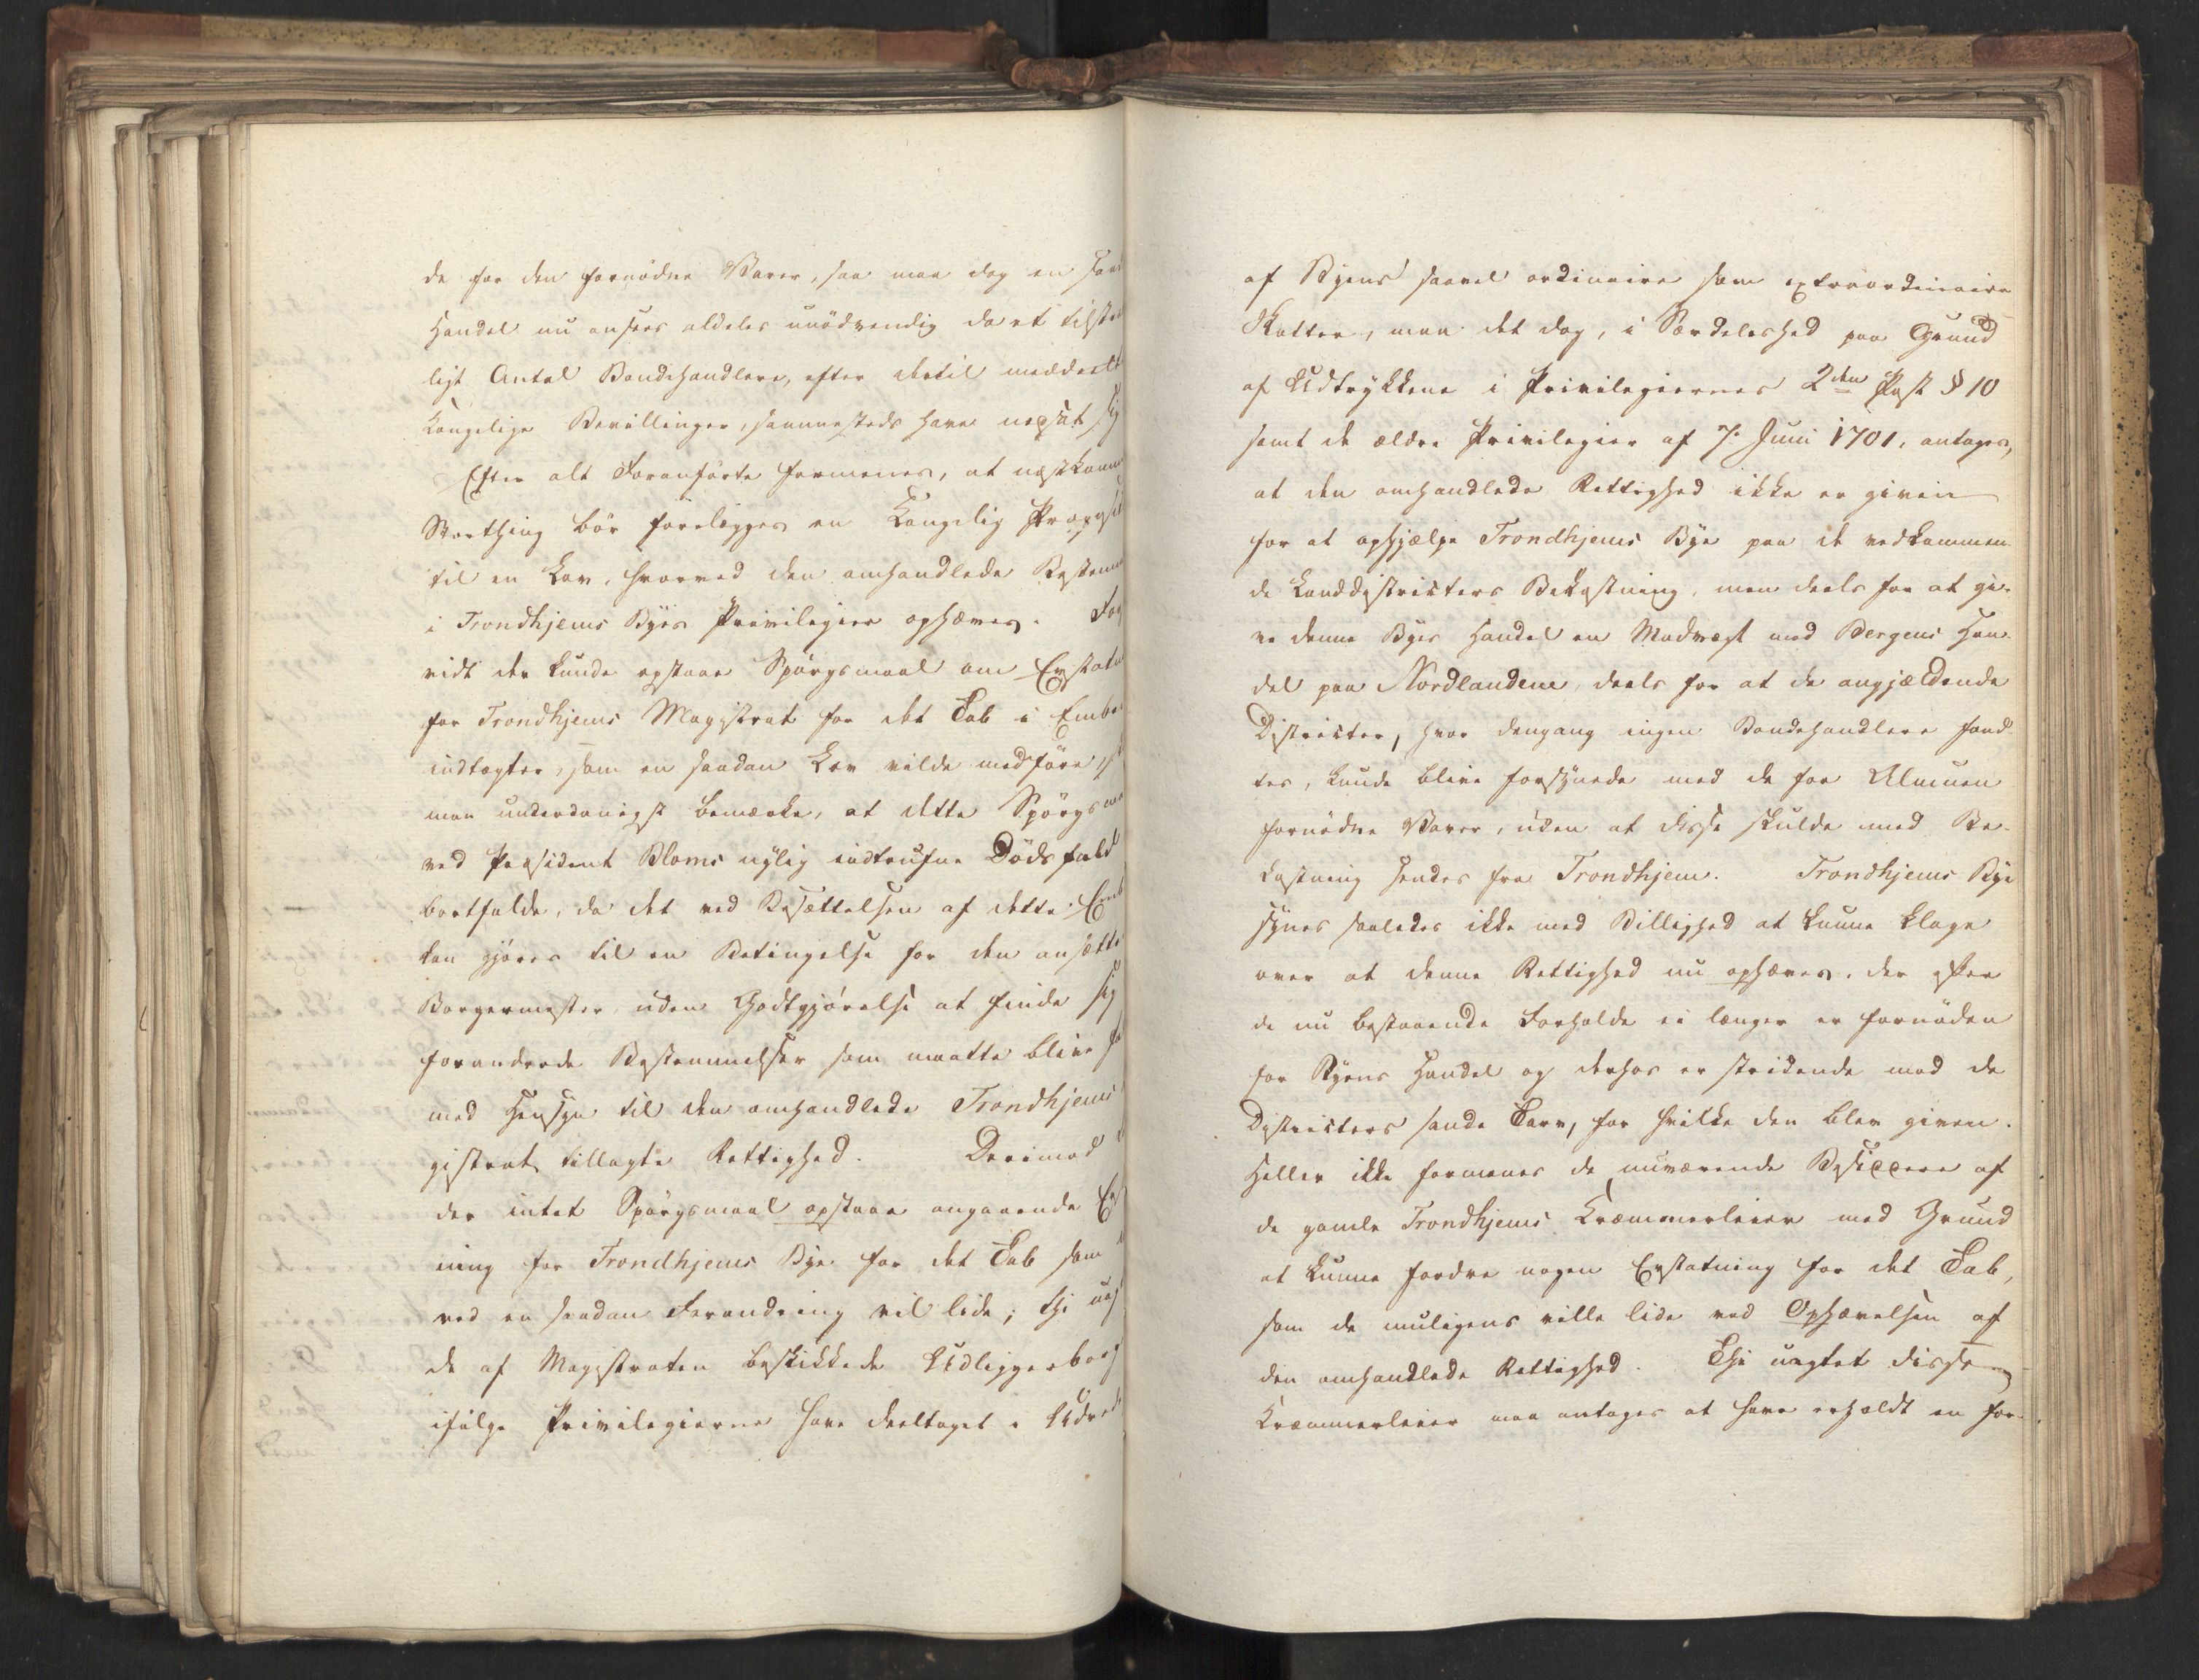 de for den fornødne Varer, saa maa dog en saad
Handel nu ansees aldeles unødvendig da et tilstræk
ligt Antal Bondehandlere, efter dertil meddeelte
Kongelige Bevillinger, sammesteds have nedsat sig
Efter alt Foranførte formenes, at næstkomm
Storthing bør forelægges en Kongelig Proposi
til en Lov, hvorved den omhandlede Bestemm
i Trondhjems Byes Privilegier ophæves. For
vidt der kunde opstaae Spørgsmaal om Erstatn
for Trondhjems Magistrat for det Tab i Embe
indtægter, som en saadan Lov vilde medføre,
maa underdanigst bemærke, at dette Spørgsm
ved Præsident Bloms nylig indtrufne Dødsfald
bortfalde, da det ved Besættelsen af dette Emb
kan gjøres til en Betingelse for den ansætte
Borgermester uden Godtgjørelse at finde sig
forandrede Bestemmelser som maatte blive
med Hensyn til den omhandlede Trondhjems
gistrat tillagte Rettighed. Derimod
der intet Spørgsmaal opstaae angaaende Er
ning for Trondhjems Bye for det Tab som
ved en saadan Forandring vil lide; thi uag
de af Magistraten beskikkede Udliggerborg
ifølge Privilegierne have deeltaget i Udred
af Byens saavel ordinaire som extraordinaire
Skatter, maa det dog, i Særdeleshed paa Grund
af Udtrykkene i Privilegiernes 2den Post § 10
samt de ældre Privilegier af 7. Juni 1701, antages,
at den omhandlede Rettighed ikke er given
for at ophjælpe Trondhjems Bye paa de vedkommen-
de Landdistricters Bekostning, men deels for at gi-
ve denne Byes Handel en Modvægt mod Bergens Han-
del paa Nordlandene, deels for at de angjældende
Districter, hvor dengang ingen Bondehandlere fand-
tes, kunde blive forsynede med de for Almuen
fornødne Varer, uden at disse skulde med Be-
kostning hentes fra Trondhjem. Trondhjems Bye
synes saaledes ikke med Billighed at kunne klage
over at denne Rettighed nu ophæves, der efter
de nu bestaaende Forholde ei længer er fornøden
for Byens Handel og derhos er stridende mod de
Districters sande Tarv, for hvilke den blev given.
Heller ikke formenes de nuværende Besiddere af
de gamle Trondhjems Kræmmerleier med Grund
at kunne fordre nogen Erstatning for det Tab,
som de muligens ville lide ved Ophævelsen af
den omhandlede Rettighed. Thi uagtet disse
Kræmmerleier maa antages at have erholdt en for-